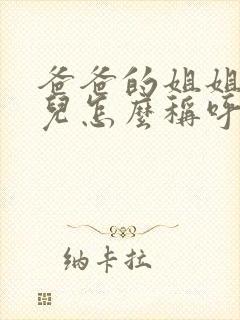 爸爸的姐姐
兒怎麼稱呼
纳卡拉